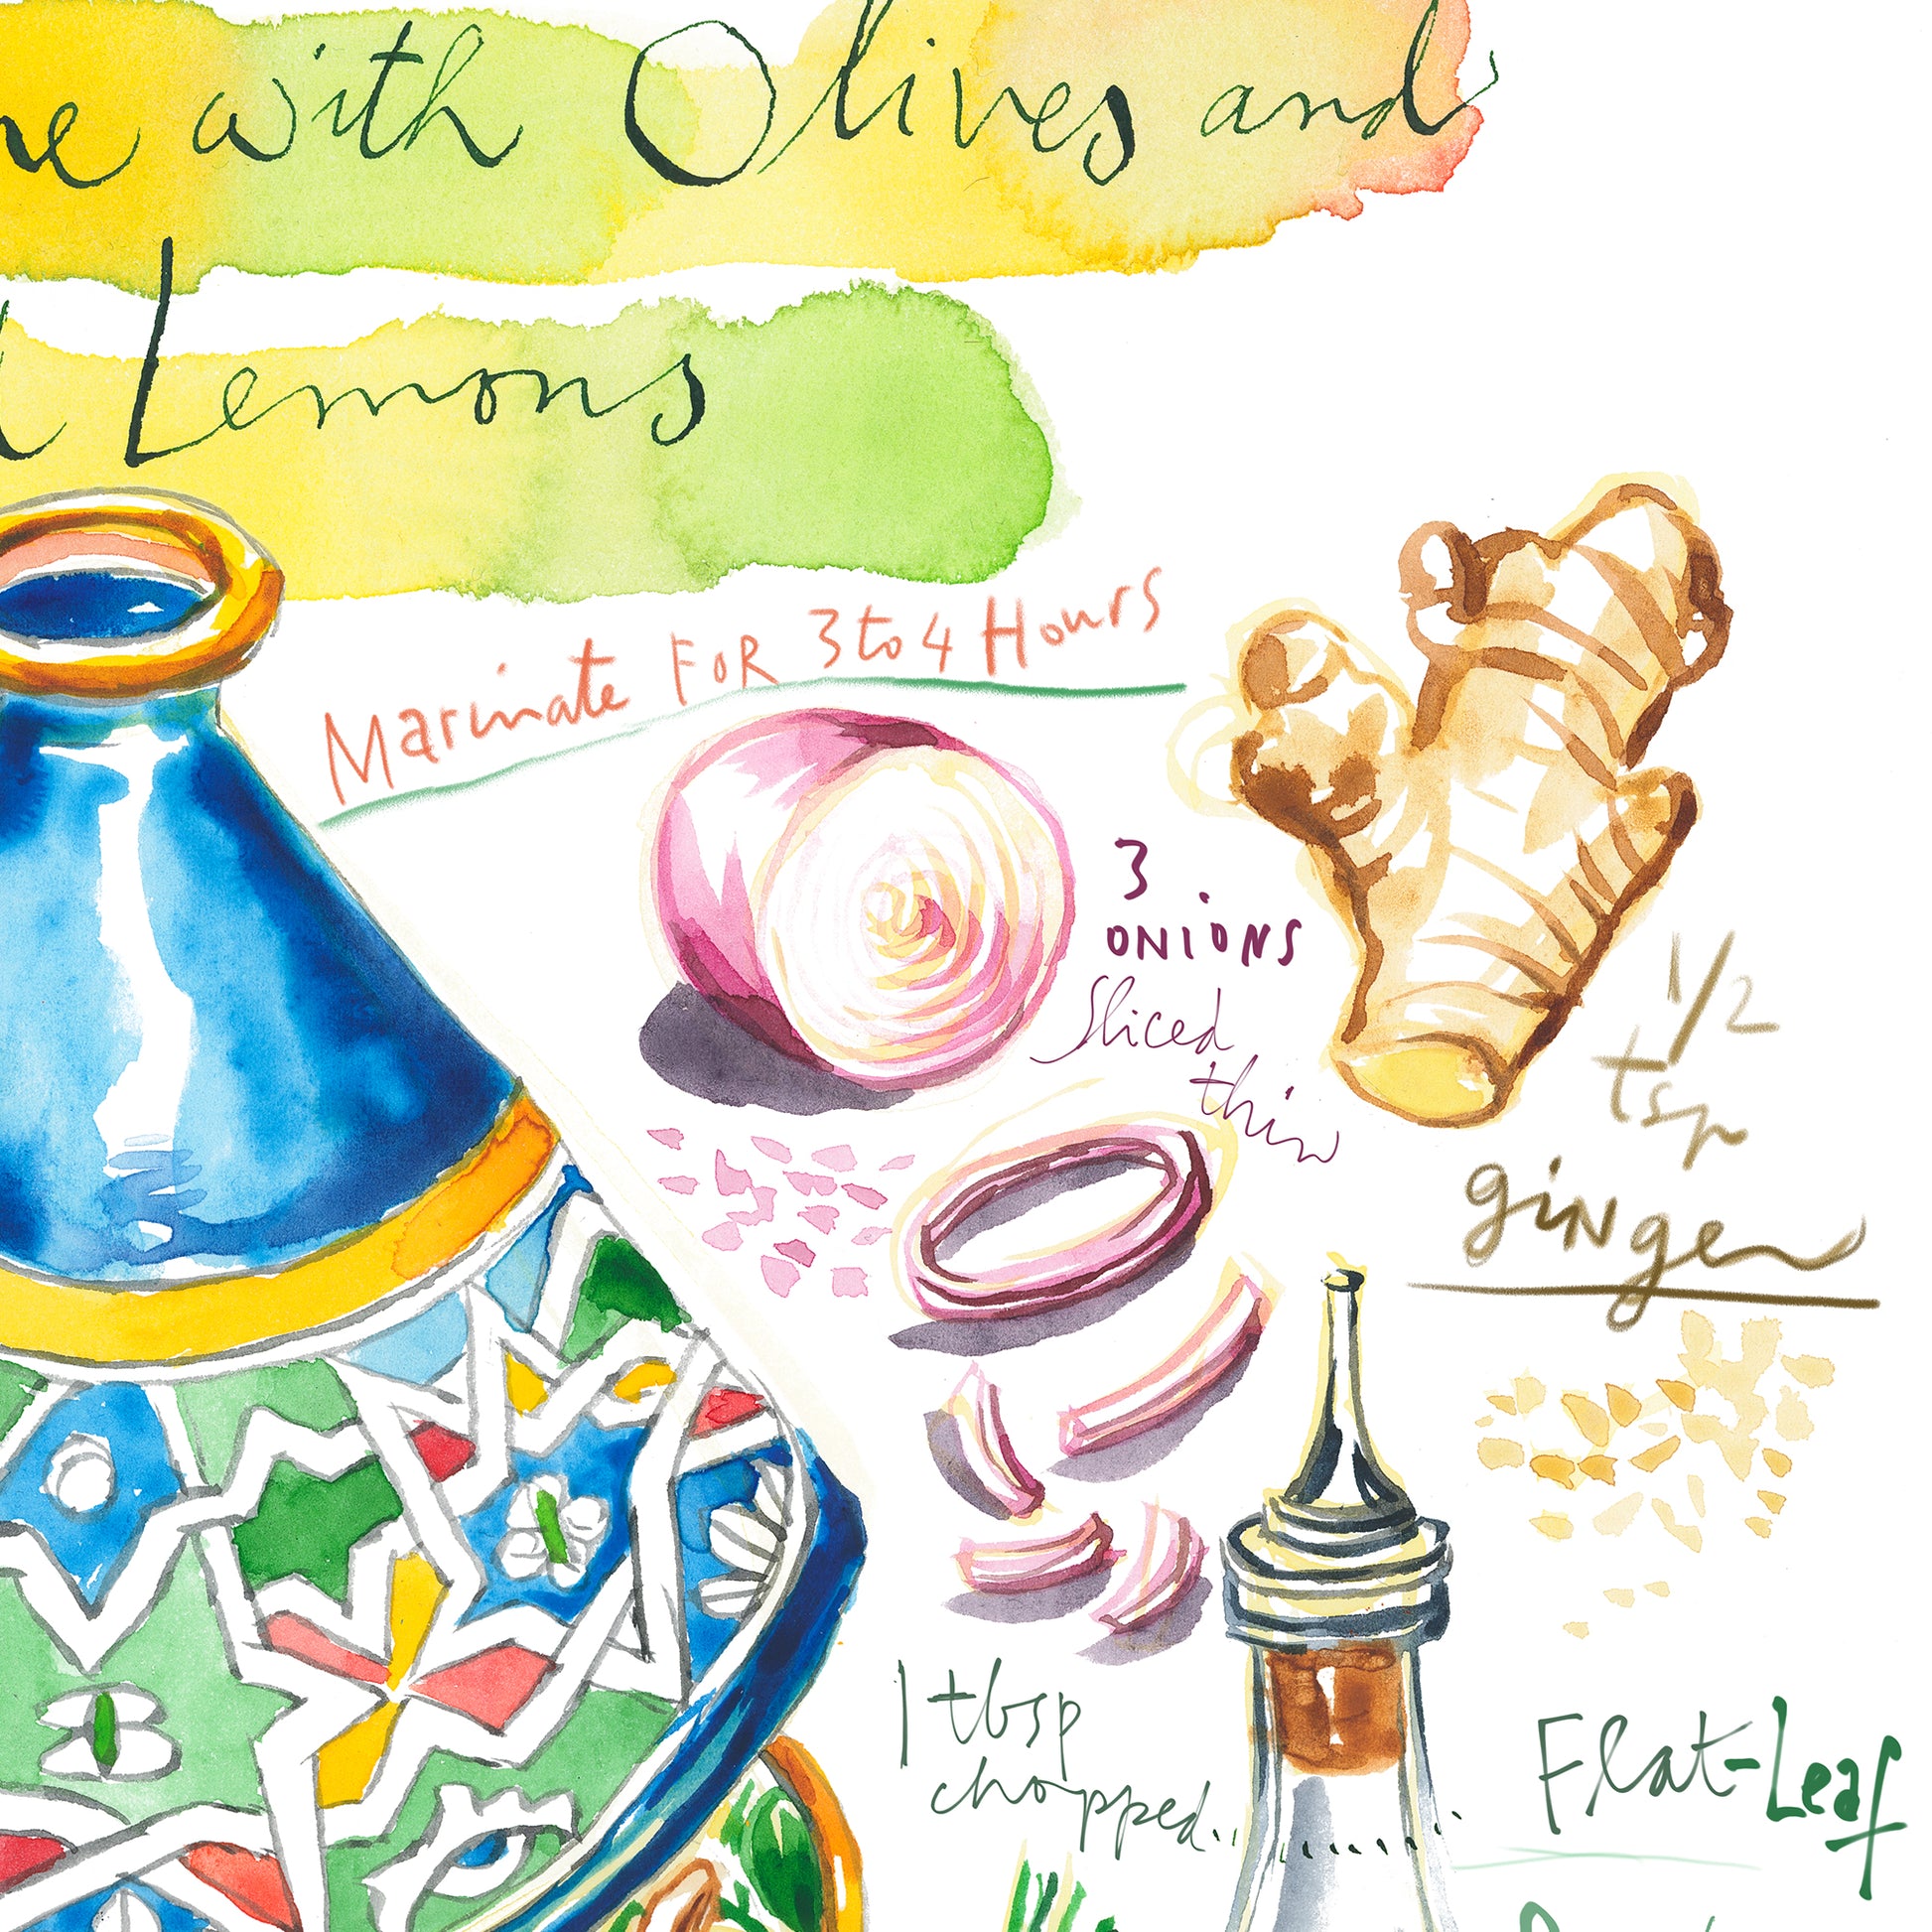 with Olives and
Lemons
Marinate FOR 3 to 4 Hours
3
ONIONS
Sliced
thin
1/2
tsp
ginger
1 tbsp
chopped..............
Flat-Leaf